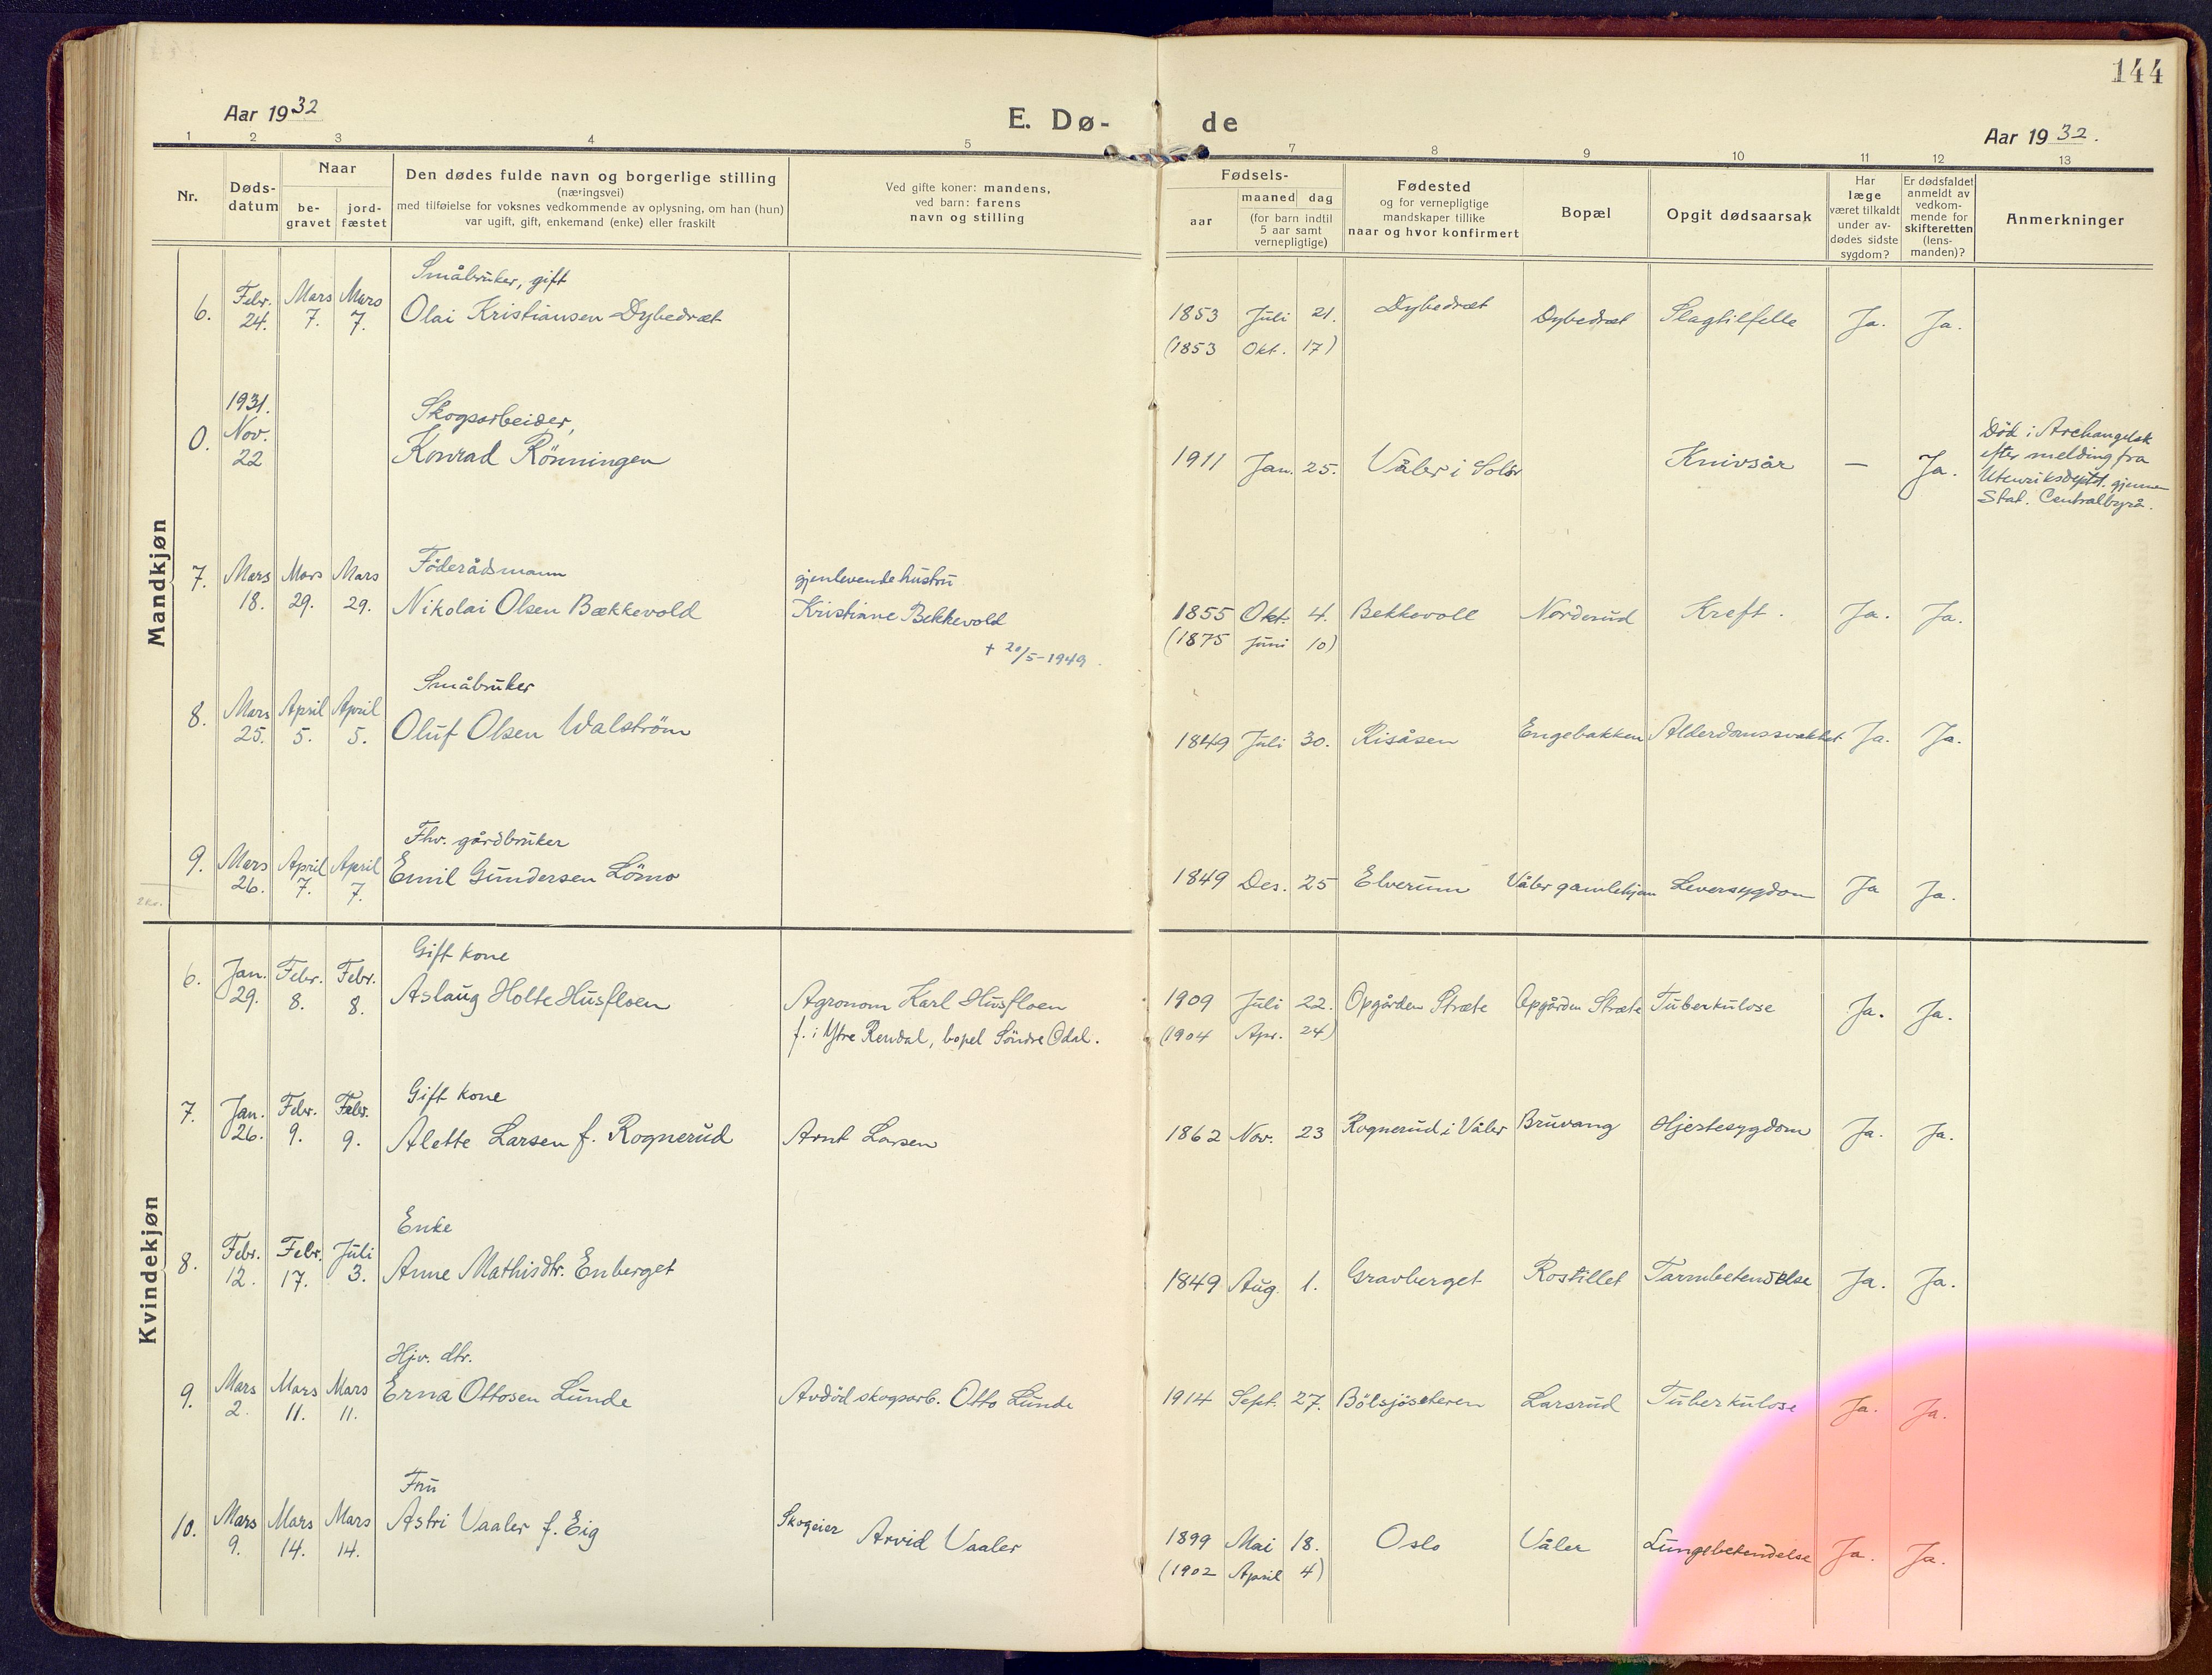 144
Aar 1932
E. Dø-
de
Aar 1932.
1 2 3 4 5 7 8 9 10 11 12 13
Nr.
Døds-
datum
Naar
be-
gravet
jord-
fæstet
Den dødes fulde navn og borgerlige stilling
(næringsvei)
med tilføielse for voksnes vedkommende av oplysning, om han (hun)
var ugift, gift, enkemand (enke) eller fraskilt
Ved gifte koner: mandens,
ved barn: farens
navn og stilling
Fødsels-
aar
maaned
dag
(for barn indtil
5 aar samt
vernepligtige)
Fødested
og for vernepligtige
mandskaper tillike
naar og hvor konfirmert
Bopæl
Opgit dødsaarsak
Har
læge
været tilkaldt
under av-
dødes sidste
sygdom?
Er dødsfaldet
anmeldt av
vedkom-
mende for
skifteretten
(lens-
manden)?
Anmerkninger
Mandkjøn
Småbruker, gift
6. Febr. Mars Mars Olai Kristiansen Dybedræt 1853 Juli 21. Dybedræt Dybedræt Slagtilfelle Ja. Ja.
24. 7. 7. (1853 Okt. 17)
1931. Skogsarbeider,
0. Nov. Konrad Rönningen 1911 Jan. 25. Våler i Solör Knivsår — Ja.
22
Död i Archangelsk
efter melding fra
Utenriksdeptet. gjennem
Stat. Centralbyrå.
Föderådsmann gjenlevende hustru
7. Mars Mars Mars Nikolai Olsen Bækkevold Kristiane Bekkevold 1855 Okt. 4. Bekkevoll Norderud Kreft. Ja. Ja.
18. 29. 29. + 20/5-1949. (1875 Juni 10)
Småbruker
8. Mars April April Oluf Olsen Walström 1849 Juli 30. Risåsen Engebakken Alderdomssvakhet Ja. Ja.
25. 5. 5.
Fhv. gårdbruker
9. Mars April April Emil Gundersen Lömo 1849 Des. 25 Elverum Våler gamlehjem Leversygdom Ja Ja.
26. 7. 7.
Kvindekjøn
Gift kone
6. Jan. Febr. Febr. Aslaug Holte Husfloen Agronom Karl Husfloen 1909 Juli 22. Opgården Stræte Opgården Stræte Tuberkulose Ja. Ja.
29. 8. 8. f. i Ytre Rendal, bopel Söndre Odal. (1904 Apr. 24)
Gift kone
7. Jan. Febr. Febr. Alette Larsen f. Rognerud Arnt Larsen 1862 Nov. 23 Rognerud i Våler Bruvang Hjertesygdom Ja. Ja.
26. 9. 9.
Enke
8. Febr. Febr. Juli Anne Mathisdtr. Enberget 1849 Aug. 1. Gravberget Rostillet Tarmbetendelse Ja. Ja.
12. 17. 3.
Hjv. dtr.
9. Mars Mars Mars Erna Ottosen Lunde Avdöd skogsarb. Otto Lunde 1914 Sept. 27. Bölsjösæteren Larsrud Tuberkulose Ja. Ja.
2. 11. 11.
Fru
10. Mars Mars Mars Astri Vaaler f. Eig Skogeier Arvid Vaaler 1899 Mai 18. Oslo Våler Lungebetendelse Ja. Ja.
9. 14. 14. (1902 April 4)